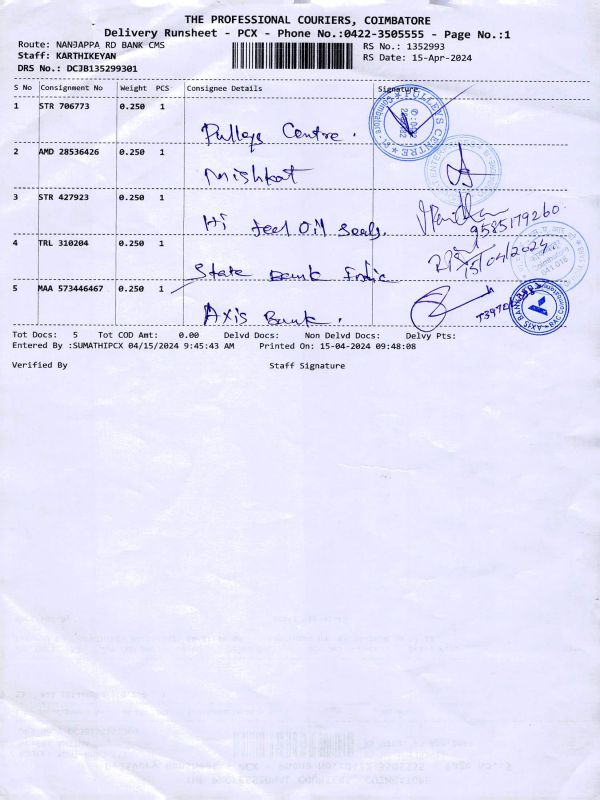 THE PROFESSIONAL COURIERS, COIMBATORE
Delivery Runsheet - PCX - Phone No.:0422-3505555 - Page No.:1
Route: NANJAPPA RD BANK CMS
RS No.: 1352993
Staff: KARTHIKEYAN
RS Date: 15-Apr-2024
DRS No.: DCJB135299301
S No Consignment No Weight PCS Consignee Details Signature
1 STR 706773 0.250 1
Pulleys Centre.
PULLEYS CENTRE
2 AMD 28536426 0.250 1
Mishkat
3 STR 427923 0.250 1
Hi feel Oil Seals.
9585179260
4 TRL 310204 0.250 1
15/04/2024
State Bank India
5 MAA 573446467 0.250 1
Axis Bank.
AXIS BANK
Tot Docs: 5 Tot COD Amt: 0.00 Delvd Docs: Non Delvd Docs: Delvy Pts:
Entered By :SUMATHIPCX 04/15/2024 9:45:43 AM Printed On: 15-04-2024 09:48:08
Verified By Staff Signature